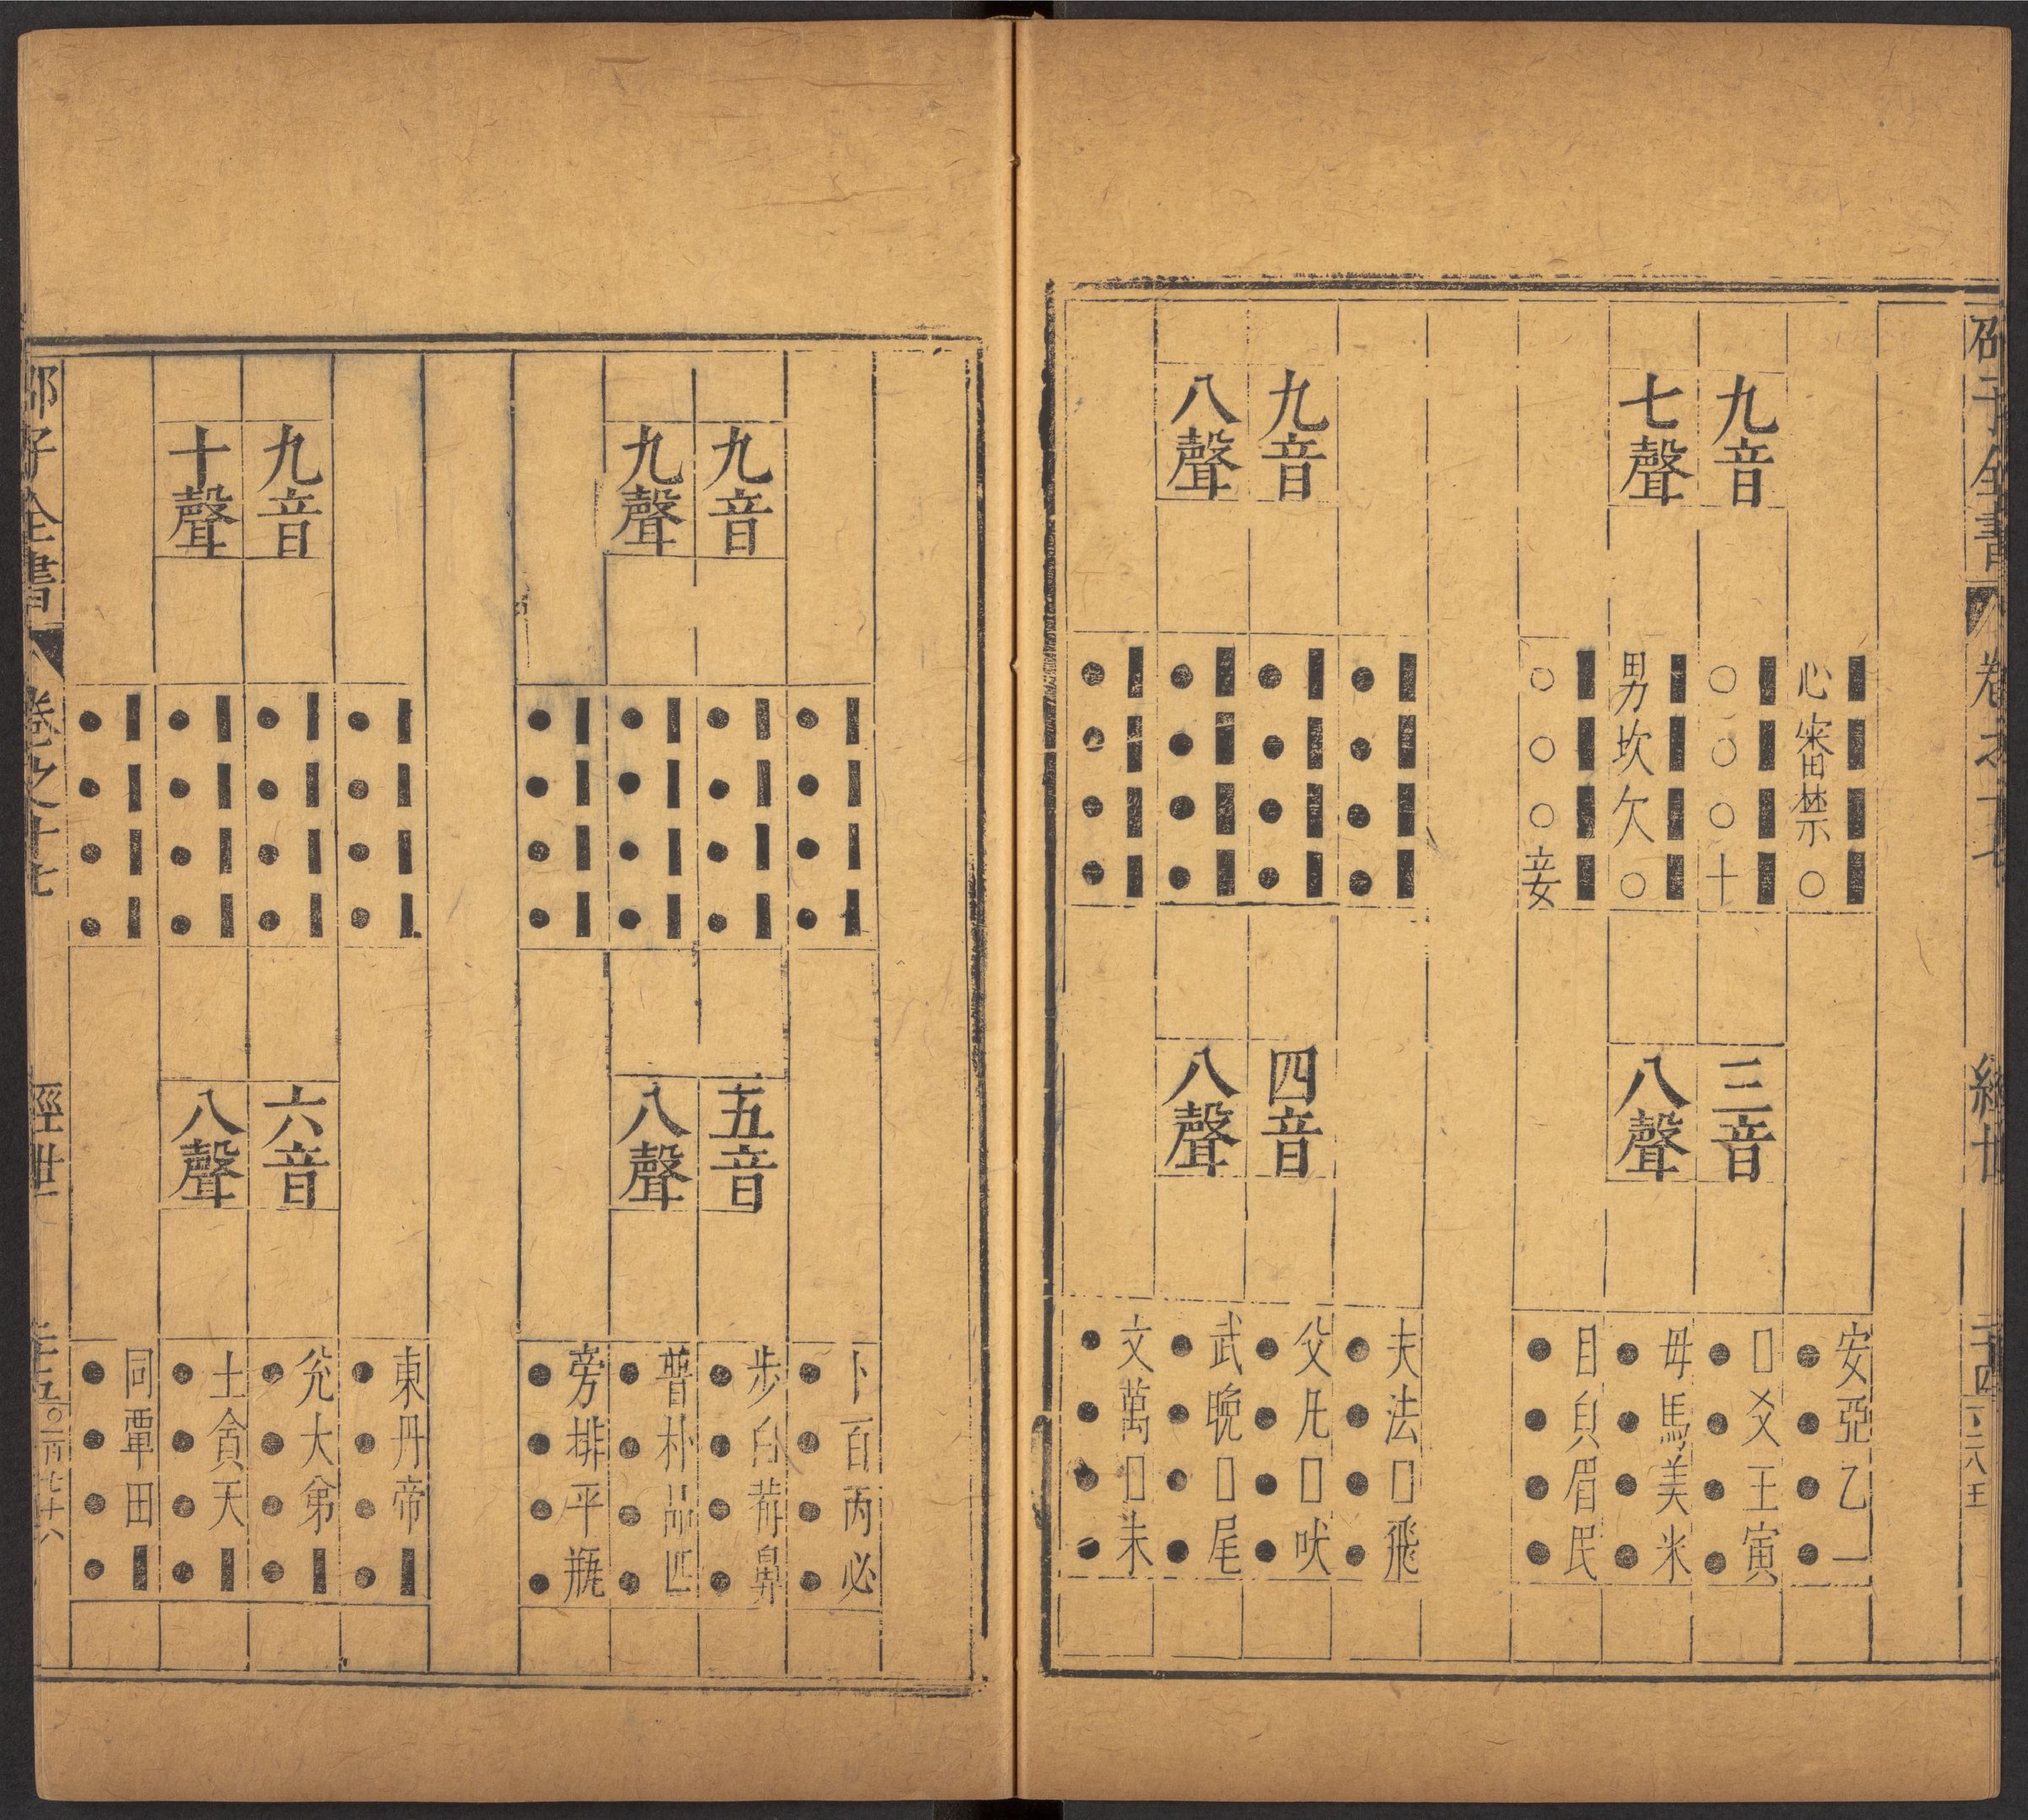 邵子全書 卷之十七 經世 二十四
九音
七聲
心審禁○
○○○十
男坎欠○
○○○妾
三音
八聲
安亞乙一
●●●●
□爻王寅
●●●●
母馬美米
●●●●
目皃眉民
●●●●
九音
八聲
●●●●
●●●●
●●●●
●●●●
四音
八聲
夫法□飛
●●●●
父凡□吠
●●●●
武晚□尾
●●●●
文萬□未
●●●●
九音
九聲
●●●●
●●●●
●●●●
●●●●
五音
八聲
卜百丙必
●●●●
步白荷鼻
●●●●
普朴品匹
●●●●
旁排平瓶
●●●●
九音
十聲
●●●●
●●●●
●●●●
●●●●
六音
八聲
東丹帝■
●●●●
兊大弟■
●●●●
土貪天■
●●●●
同覃田■
●●●●
邵子全書 卷之十七 經世 二十五